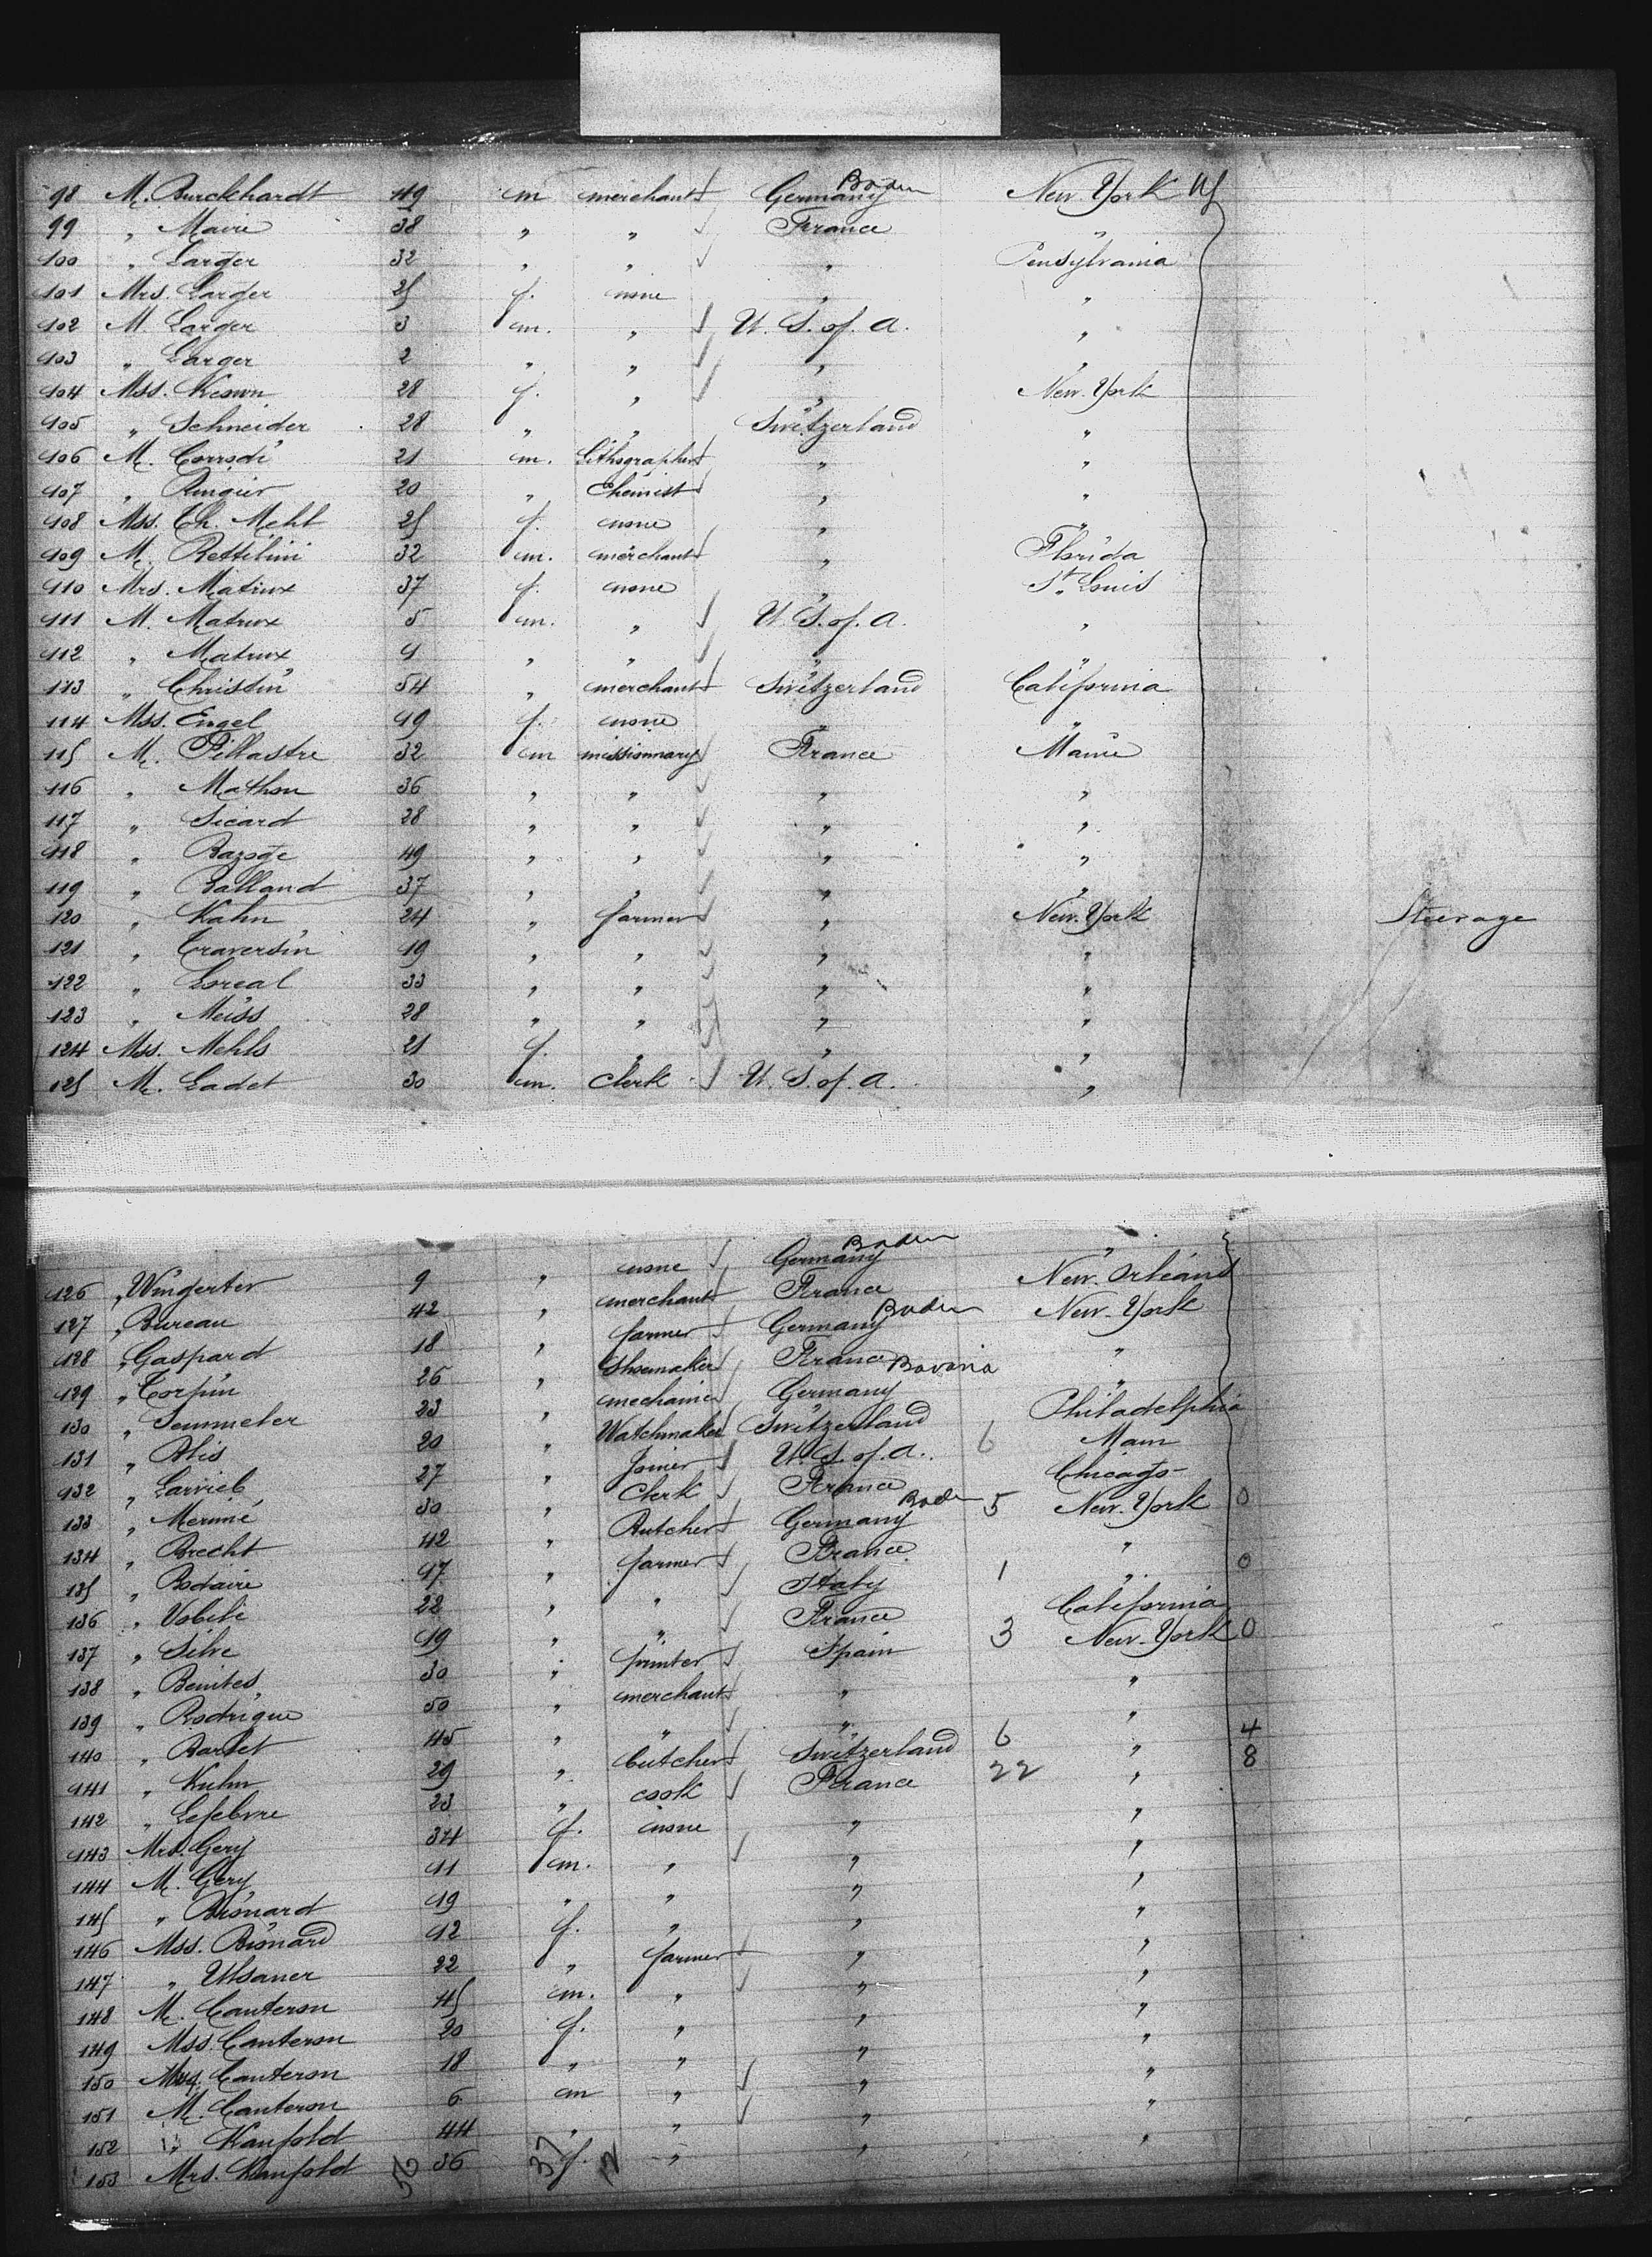 98 M. Burckhardt 49 m merchant Germany Baden New-York
99 " Maire 38 " " France "
100 " Larger 32 " " " Pensylvania
101 Mrs. Larger 25 f. none " "
102 M. Larger 3 m. " U. S. of. A. "
103 " Larger 2 " " " "
104 Mss. Keown 28 f. " " New-York
105 " Schneider 28 " " Switzerland "
106 M. Corrodi 21 m. Lithographer " "
107 " Ringier 20 " Chemist " "
108 Mss. Ch. Mehl 25 f. none " "
109 M. Rettilini 32 m. merchant " Florida
110 Mrs. Matrux 37 f. none " St. Louis
111 M. Matrux 5 m. " U. S. of. A. "
112 " Matrux 4 " " " "
113 " Christin 54 " merchant Switzerland California
114 Mss. Engel 19 f. none " "
115 M. Pillastre 32 m missionnary France
116 " Mathon 36 " " " "
117 " Sicard 28 " " " "
118 " Bazoge 49 " " " "
119 " Balland 37 " " " "
120 " Kahn 24 " farmer " New-York Steerage
121 " Traversin 19 " " " "
122 " Loreal 33 " " " "
123 " Meiss 28 " " " "
124 Mss. Mehls 21 f. " " "
125 M. Ladet 30 m. Clerk U. S. of. A. "
126 " Wingerter 9 " none Germany Baden "
127 " Bureau 42 " merchant France New-Orleans
128 " Gaspard 18 " farmer Germany Baden New-York
129 " Torpin 26 " Shoemaker France "
130 " Semmeler 23 " mechanic Germany Bavaria "
131 " Alis 20 " Watchmaker Switzerland Philadelphia
132 " Larrieb 27 " Joiner U. S. of. A. 6
133 " Merimé 30 " Clerk France Chicago
134 " Brecht 42 " Butcher Germany Baden 5 New-York 0
135 " Rodaire 47 " farmer France "
136 " Vobile 22 " " Italy 1 " 0
137 " Silve 19 " " France California
138 " Benites 30 " printer Spain 3 New-York 0
139 " Rodrigue 50 " merchant " "
140 " Barlet 45 " " " "
141 " Kuhn 29 " Butcher Switzerland 6 " 4
142 " Lefebvre 23 " cook France 22 " 8
143 Mrs. Gery 34 f. none " "
144 M. Gery 11 m. " " "
145 " Bronard 19 " " " "
146 Mss. Bronard 12 f. " " "
147 " Ulsaner 22 " farmer " "
148 M. Canteron 45 m. " " "
149 Mss. Canteron 20 f. " " "
150 Canteron 18 " " " "
151 M. Canteron 6 m " " "
152 " Kanfold 44 " " " "
153 Mrs. Kanfold 36 f. " " "
56 37